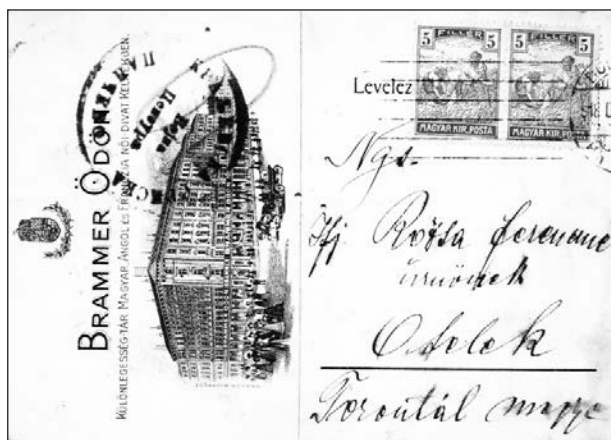 BRAMMER ÖDÖN
KÜLÖNLEGESSÉG-TÁR MAGYAR, ANGOL ÉS FRANCZIA NŐI-DIVAT KELMÉKBEN.
FILLÉR
5 5
MAGYAR KIR. POSTA
FILLÉR
5 5
MAGYAR KIR. POSTA
Levelez
Ngs.
Ifj Rózsa Ferencné
úrnőnek
Ótelek
Torontál megye